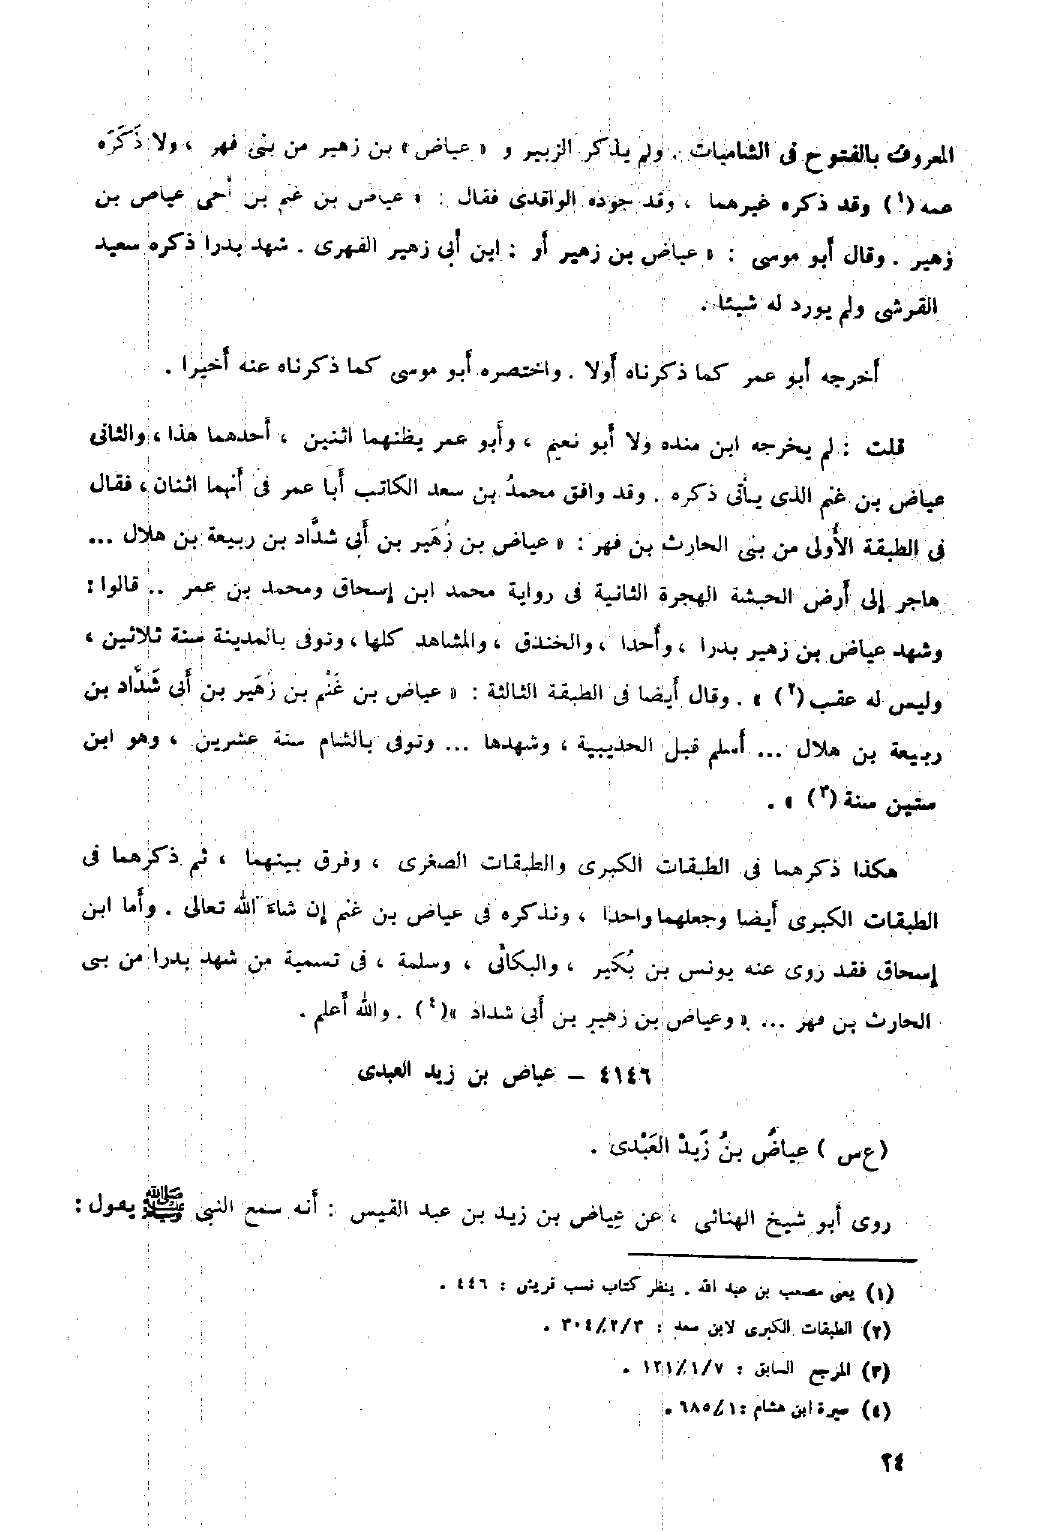 المعروف بالفتوح فى الشاميات . ولم يذكر الزبير و « عياض » بن زهير من بنى فهر ، ولا ذَكَرَه
عمه (١) وقد ذكره غيرهما ، وقد جوده الواقدى فقال : « عياض بن غنم بن أخى عياض بن
زهير . وقال أبو موسى : « عياض بن زهير أو : ابن أبى زهير الفهرى . شهد بدرا ذكره سعيد
القرشى ولم يورد له شيئا .
أخرجه أبو عمر كما ذكرناه أولا . واختصره أبو موسى كما ذكرناه عنه أخيرا .
قلت : لم يخرجه ابن منده ولا أبو نعيم ، وأبو عمر يظنهما اثنين ، أحدهما هذا ، والثانى
عياض بن غنم الذى يأتى ذكره . وقد وافق محمدُ بن سعد الكاتب أبا عمر فى أنهما اثنان ، فقال
فى الطبقة الأولى من بنى الحارث بن فهر : « عياض بن زُهَير بن أبى شدَّاد بن ربيعة بن هلال ...
هاجر إلى أرض الحبشة الهجرة الثانية فى رواية محمد ابن إسحاق ومحمد بن عمر .. قالوا :
وشهد عياض بن زهير بدرا ، وأحدا ، والخندق ، والمشاهد كلها ، وتوفى بالمدينة سنة ثلاثين ،
وليس له عقب (٢) » . وقال أيضا فى الطبقة الثالثة : « عياض بن غَنْم بن زُهَير بن أبى شَدَّاد بن
ربيعة بن هلال ... أسلم قبل الحديبية ، وشهدها ... وتوفى بالشام سنة عشرين ، وهو ابن
ستين سنة (٣) » .
هكذا ذكرهما فى الطبقات الكبرى والطبقات الصغرى ، وفرق بينهما ، ثم ذكرهما فى
الطبقات الكبرى أيضا وجعلهما واحدا ، ونذكره فى عياض بن غنم إن شاءَ الله تعالى . وأما ابن
إسحاق فقد روى عنه يونس بن بُكَير ، والبكائى ، وسلمة ، فى تسمية من شهد بدرا من بنى
الحارث بن فهر ... « وعياض بن زهير بن أبى شداد » (٤) . والله أعلم .
٤١٤٦ – عياض بن زيد العبدى
(ع س) عِياضُ بنُ زَيدْ العَبْدى .
روى أبو شيخ الهنائى ، عن عياض بن زيد بن عبد القيس : أنه سمع النبى ﷺ يقول :
(١) يعنى مصعب بن عبد الله . ينظر كتاب نسب قريش : ٤٤٦ .
(٢) الطبقات الكبرى لابن سعد : ٣٠٤/٢/٣ .
(٣) المرجع السابق : ١٢١/١/٧ .
(٤) سيرة ابن هشام : ٦٨٥/١ .
٢٤